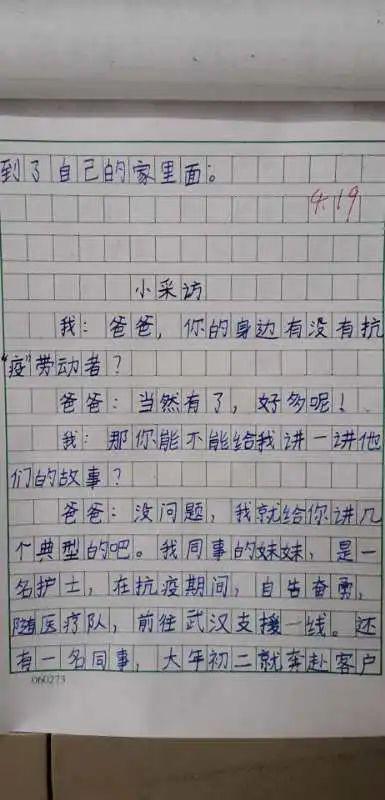 到了自己的家里面。
4.19
小采访
我：爸爸，你的身边有没有抗
“疫”劳动者？
爸爸：当然有了，好多呢！
我：那你能不能给我讲一讲他
们的故事？
爸爸：没问题，我就给你讲几
个典型的吧。我同事的妹妹，是一
名护士，在抗疫期间，自告奋勇，
随医疗队，前往武汉支援一线。还
有一名同事，大年初二就奔赴客户
060273